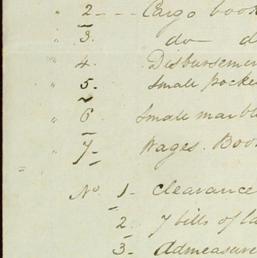 " 2 - - - Cargo book
" 3. do d
" 4. Disbursemen
" 5. Small pocke
" 6 Small marbl
" 7- Wages. Boo
No. 1- Clearance
2 7 bills of la
3- Admeasure